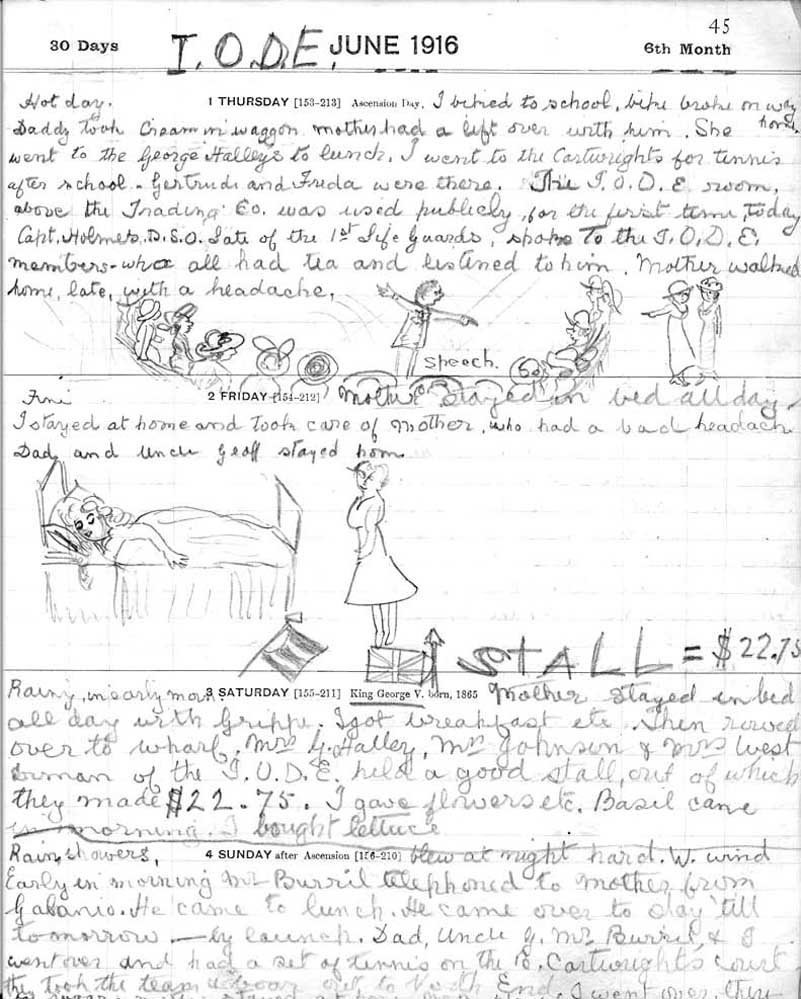 45
30 Days I.O.D.E. JUNE 1916 6th Month
Hot day. 1 THURSDAY [153-213] Ascension Day. I biked to school, bike broke on way
home
Daddy took Cream in waggon mother had a lift over with him. She
went to the George Halleys to lunch. I went to the Cartwrights for tennis
after school - Gertrude and Freda were there. The I.O.D.E room,
above the Trading Co. was used publicly, for the first time today
Capt. Holmes. D.S.O. late of the 1st Life Guards, spoke to the I.O.D.E.
members - who all had tea and listened to him. Mother walked
home, late, with a headache.
Speech.
Fine 2 FRIDAY [154-212] Mother stayed in bed all day.
I stayed at home and took care of Mother, who had a bad headach
Dad and Uncle Geoff stayed hom.
STALL = $22.75
Rainy, in early morn. 3 SATURDAY [155-211] King George V. born, 1865 Mother stayed in bed
all day with Grippe. I got breakfast etc. Then rowed
over to wharf. Mrs G. Halley, Mrs Johnson & Mrs West
of the I.O.D.E. held a good stall, out of which
they made $22.75. I gave flowers etc. Basil came
in morning. I bought lettuce
Rain, showers, 4 SUNDAY after Ascension [156-210] blew at night hard. W. wind
Early in morning Mr Burril telephoned to mother from
Galiano. He came to lunch. He came over to day 'till
tomorrow - by launch. Dad, Uncle G. Mr Burril, & I
went over and had a set of tennis on the Cartwrights court
the took the team out to North End. I went over